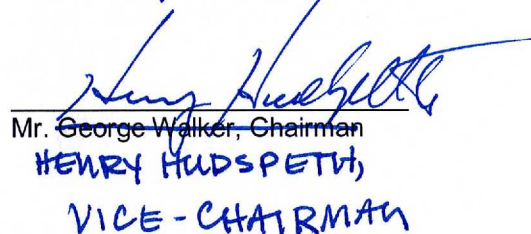 Henry Hudspeth
Mr. George Walker, Chairman
HENRY HUDSPETH,
VICE-CHAIRMAN